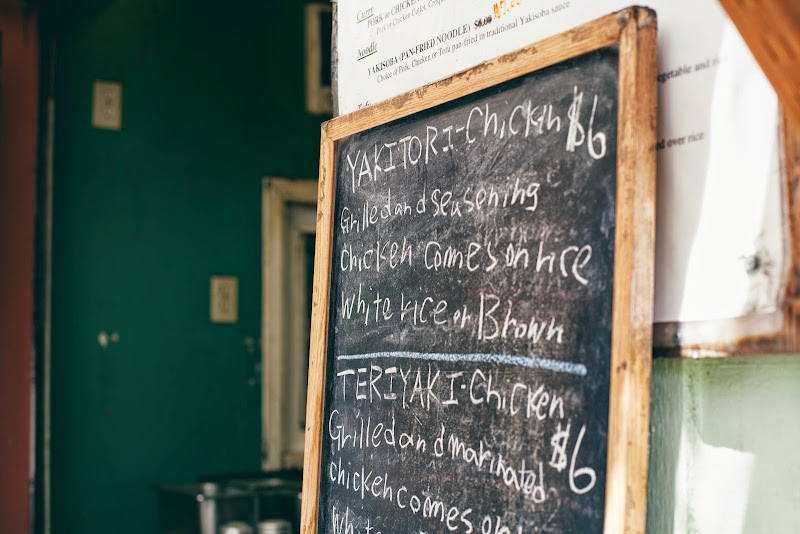 Curry
PORK or CHICKEN
Pork or Chicken Cutlet,
Noodle
YAKISOBA (PAN-FRIED NOODLE) $6.00
Choice of Pork, Chicken or Tofu pan-fried in traditional Yakisoba sauce
YAKITORI-Chickin $6
Grilled and seasening
chicken comes on rice
White rice or Brown
TERIYAKI-Chicken
Grilled and marinated $6
chicken comes on
White